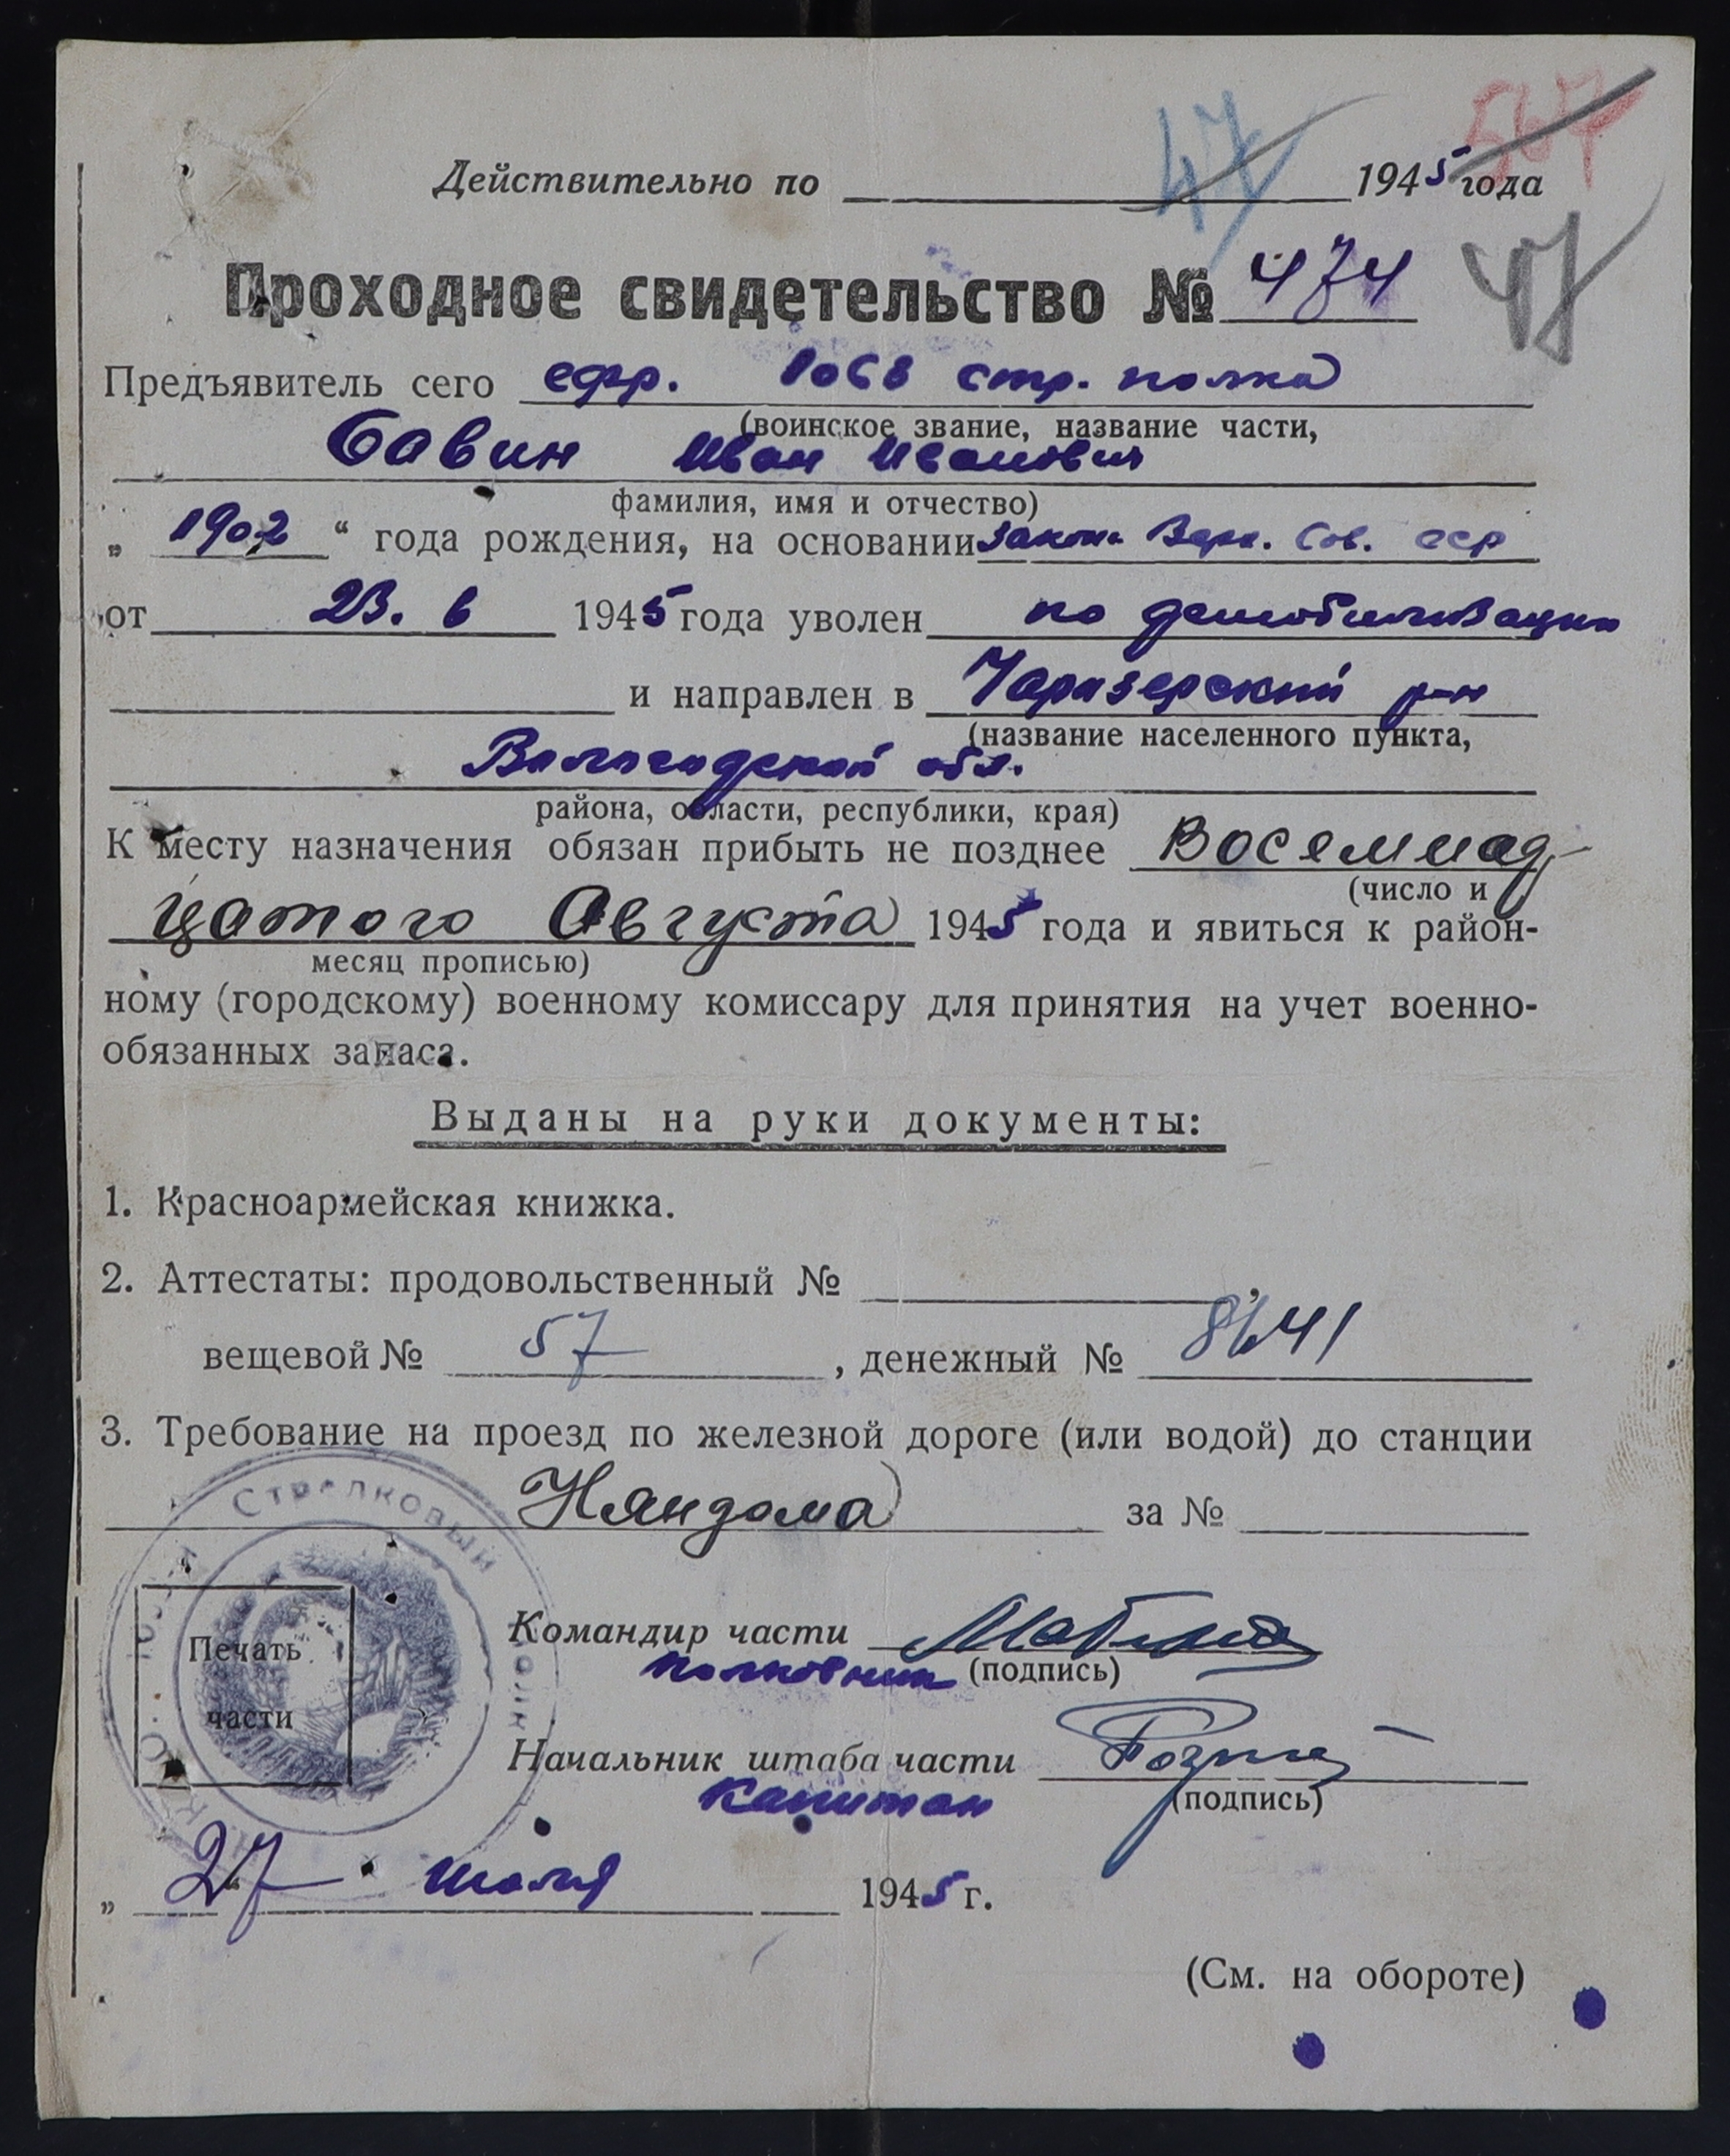 567
47
Действительно по 1945 года
Проходное свидетельство № 474
47
Предъявитель сего ефр. 1068 стр. полка
(воинское звание, название части,
Савин Иван Иванович
фамилия, имя и отчество)
„ 1902 “ года рождения, на основании закона Верх. Сов. ССР
от 23. 6 1945 года уволен по демобилизации
и направлен в Чарозерский р-н
(название населенного пункта,
Вологодской обл.
района, области, республики, края)
К месту назначения обязан прибыть не позднее Восемнад-
(число и
цатого Августа 1945 года и явиться к район-
месяц прописью)
ному (городскому) военному комиссару для принятия на учет военно-
обязанных запаса.
Выданы на руки документы:
1. Красноармейская книжка.
2. Аттестаты: продовольственный № ,
вещевой № 57 , денежный №
3. Требование на проезд по железной дороге (или водой) до станции
Няндома за №
Стрелковый полк
Печать
части
Командир части
полковник (подпись)
Начальник штаба части
капитан (подпись)
„ 27 “ июля 1945 г.
(См. на обороте)